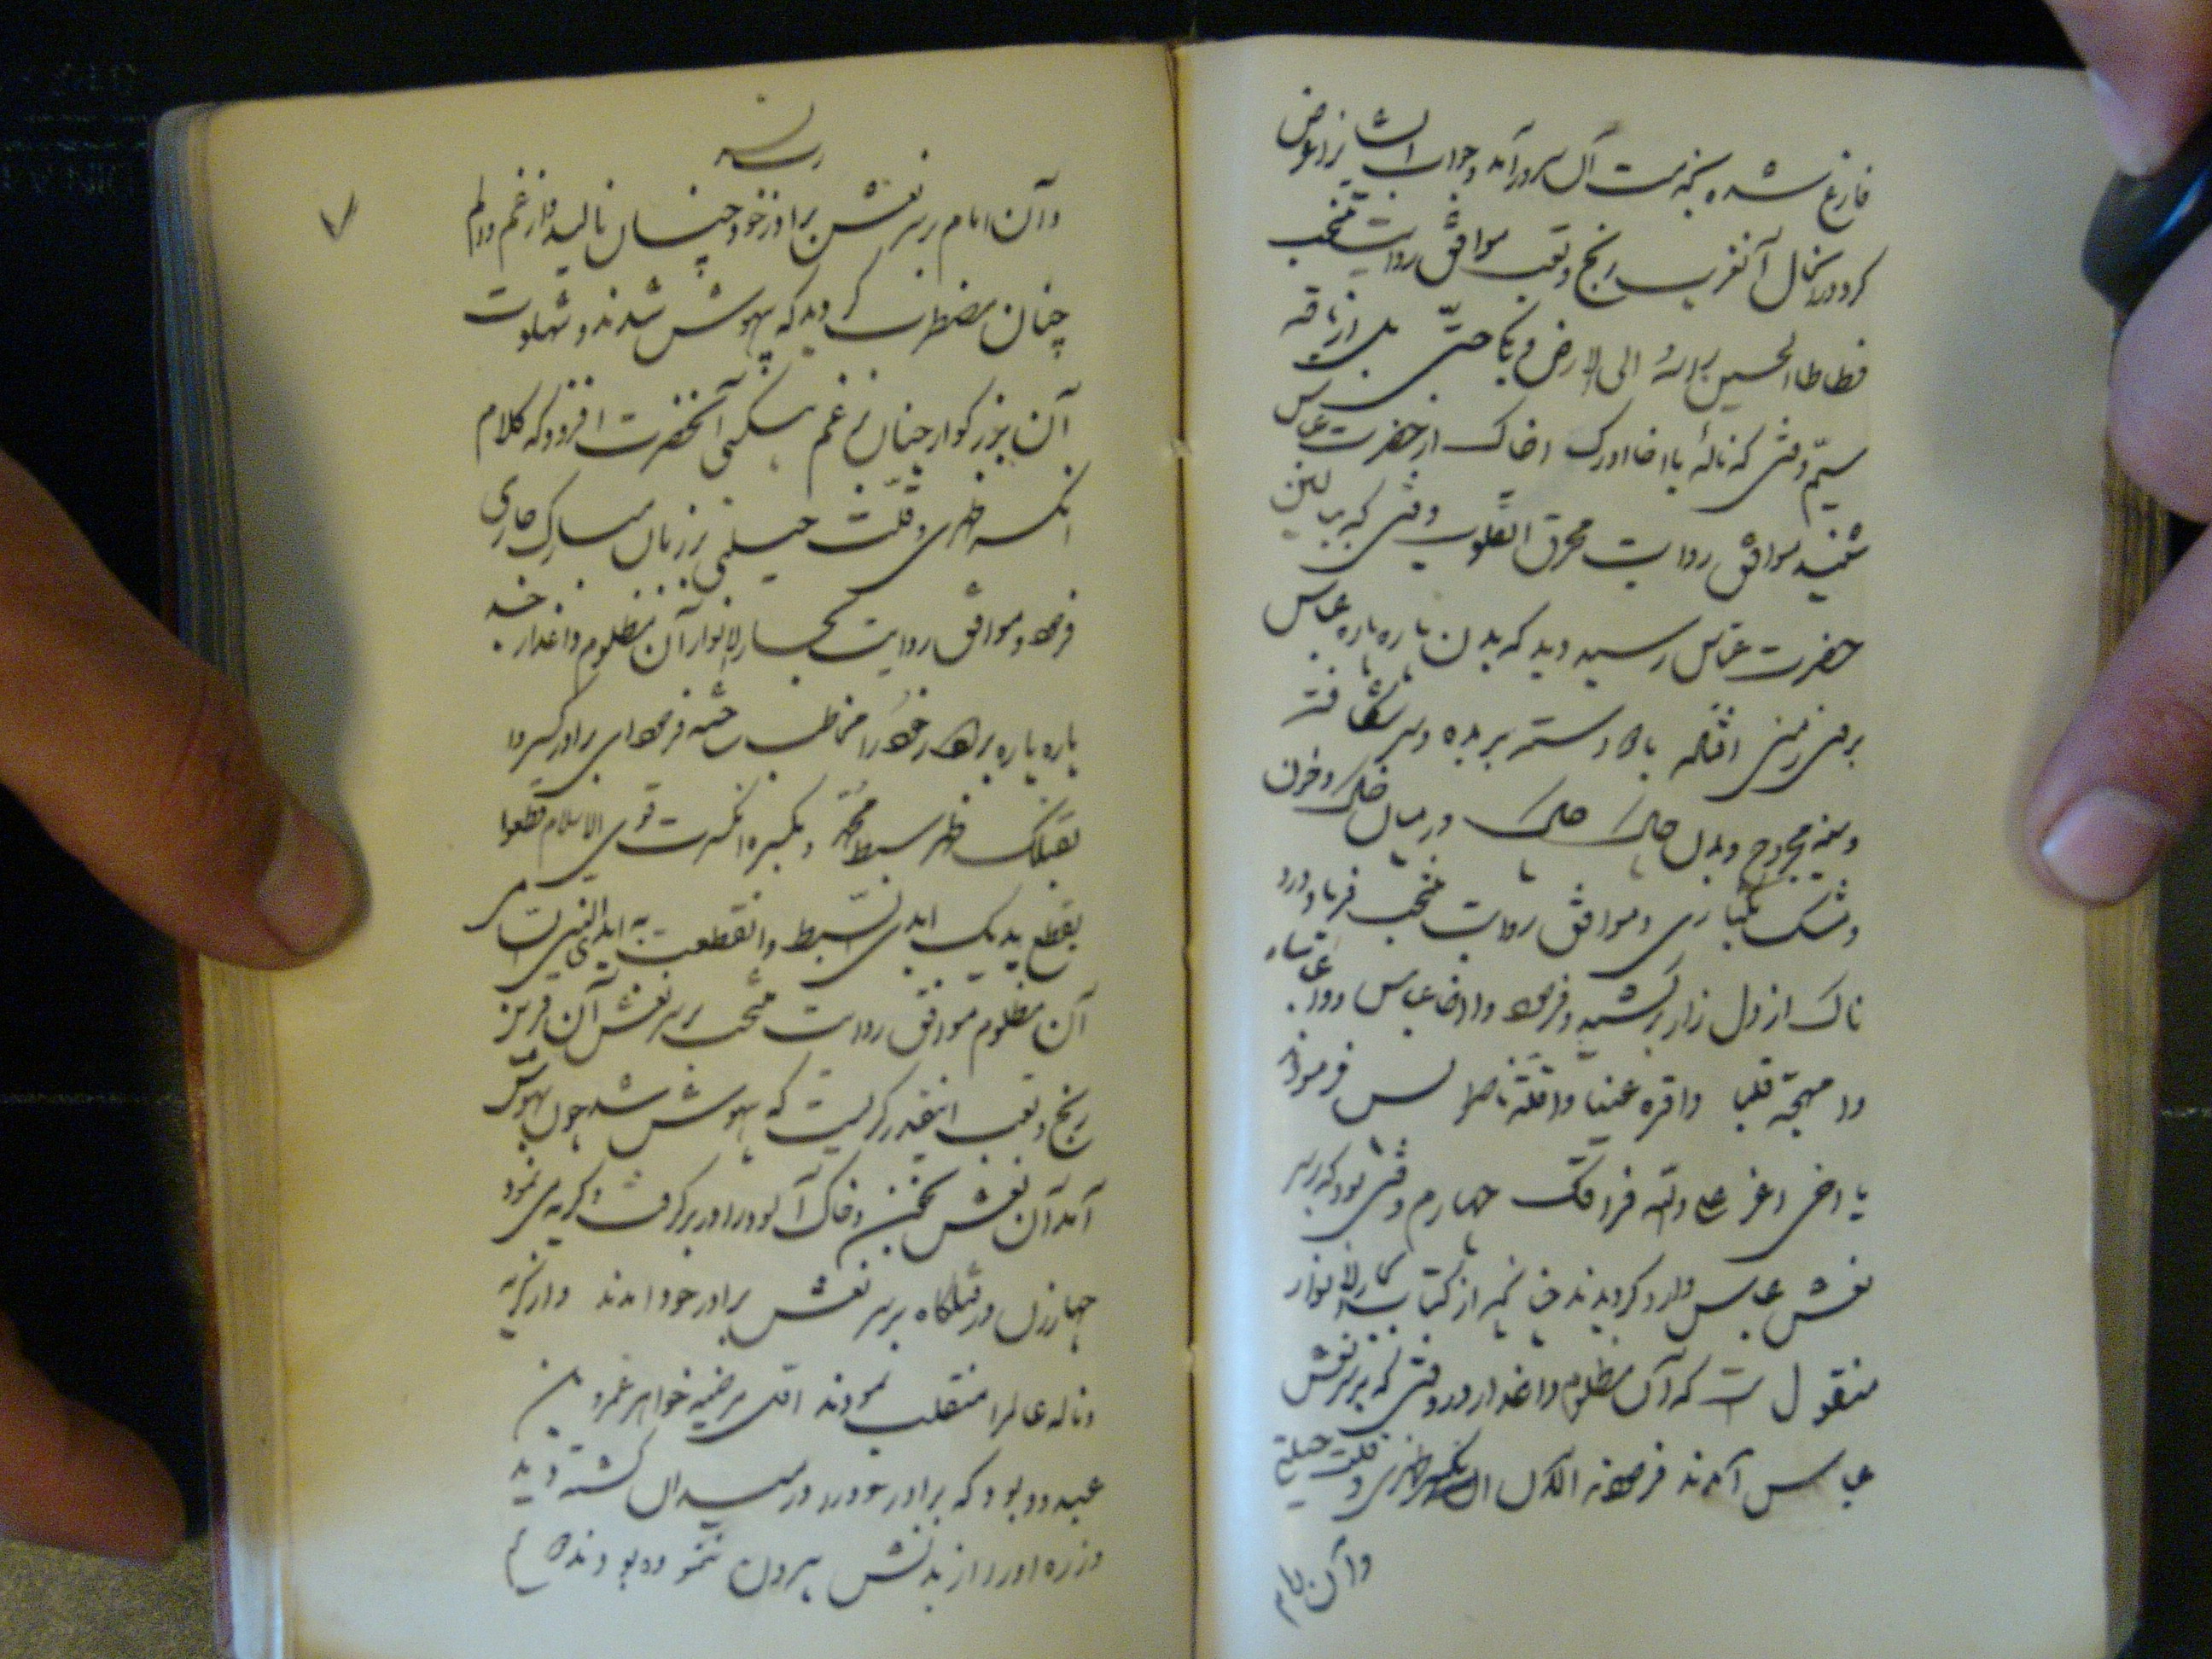 فارغ شده بخدمت آن سرور آمد و جواب ایشان را عرض
کرد در اینحال آنغریب رنج و تعب موافق روایت منتخب
فطاطا الحسین براسه الی الارض و بکا حتی بل ازیاقه
سیم وقتی که ناله یا اخا ادرک اخاک از حضرت عباس
شنید موافق روایت محرق القلوب وقتی که ببالین
حضرت عباس رسید دید که بدن پاره پاره عباس
بروی زمین افتاده با دو دست بریده و سر شکافته
و سینه مجروح و بدن چاک چاک در میان خاک و خون
و موافق روایت منتخب فریاد درد
ناک از دل زار برکشید و فرمود وا اخاه وا عباساه
وا مهجة قلباه وا قرة عیناه وا قلة ناصراه پس فرمود
یا اخی اعز علی والله فراقک چهارم وقتی بود که بر سر
نعش عباس وارد گردیدند چنانچه از کتاب بحار الانوار
منقول است که آن مظلوم داغدار در وقتی که بر سر نعش
عباس آمدند فرمودند الآن انکسر ظهری و قلت حیلتی
وآن امام
وآن امام بر سر نعش برادر خود چنان نالید و از غم و الم
چنان مضطرب گردید که بیهوش شدند و شهادت
آن بزرگوار چنان بر غم بیکسی آنحضرت افزود که کلام
انکسر ظهری و قلت حیلتی بر زبان مبارک جاری
فرمود و موافق روایت بحار الانوار آن مظلوم داغدار جسد
پاره پاره برادر خود را مخاطب ساخته فرمود ای برادر کسروا
بقتلک ظهر سبط محمد و بکسره انکسرت قوی الاسلام قطعوا
بقطع یدیک ایدی السبط وانقطعت به ایدی
آن مظلوم موافق روایت منتخب بر سر نعش آن قرین
رنج و تعب اینقدر گریست که بیهوش شد چون بهوش
آمد آن نعش بخون و خاک آلوده را در بر گرفت و گریه می نمود
چهار زن در قتلگاه بر سر نعش برادر خود آمدند و از گریه
و ناله عالم را منقلب نمودند اول مرضیه خواهر عمرو بن
عبدود بود که برادر خود را در میدان کشته دید
و زره او را از بدنش بیرون ننموده بودند